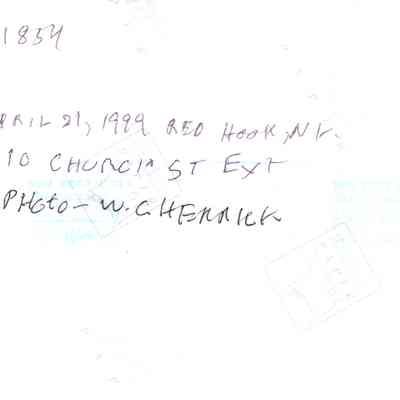 1854
PRIL 21, 1999 RED HOOK, NY.
10 CHURCH ST EXT
PHOTO - W. CHERRICK